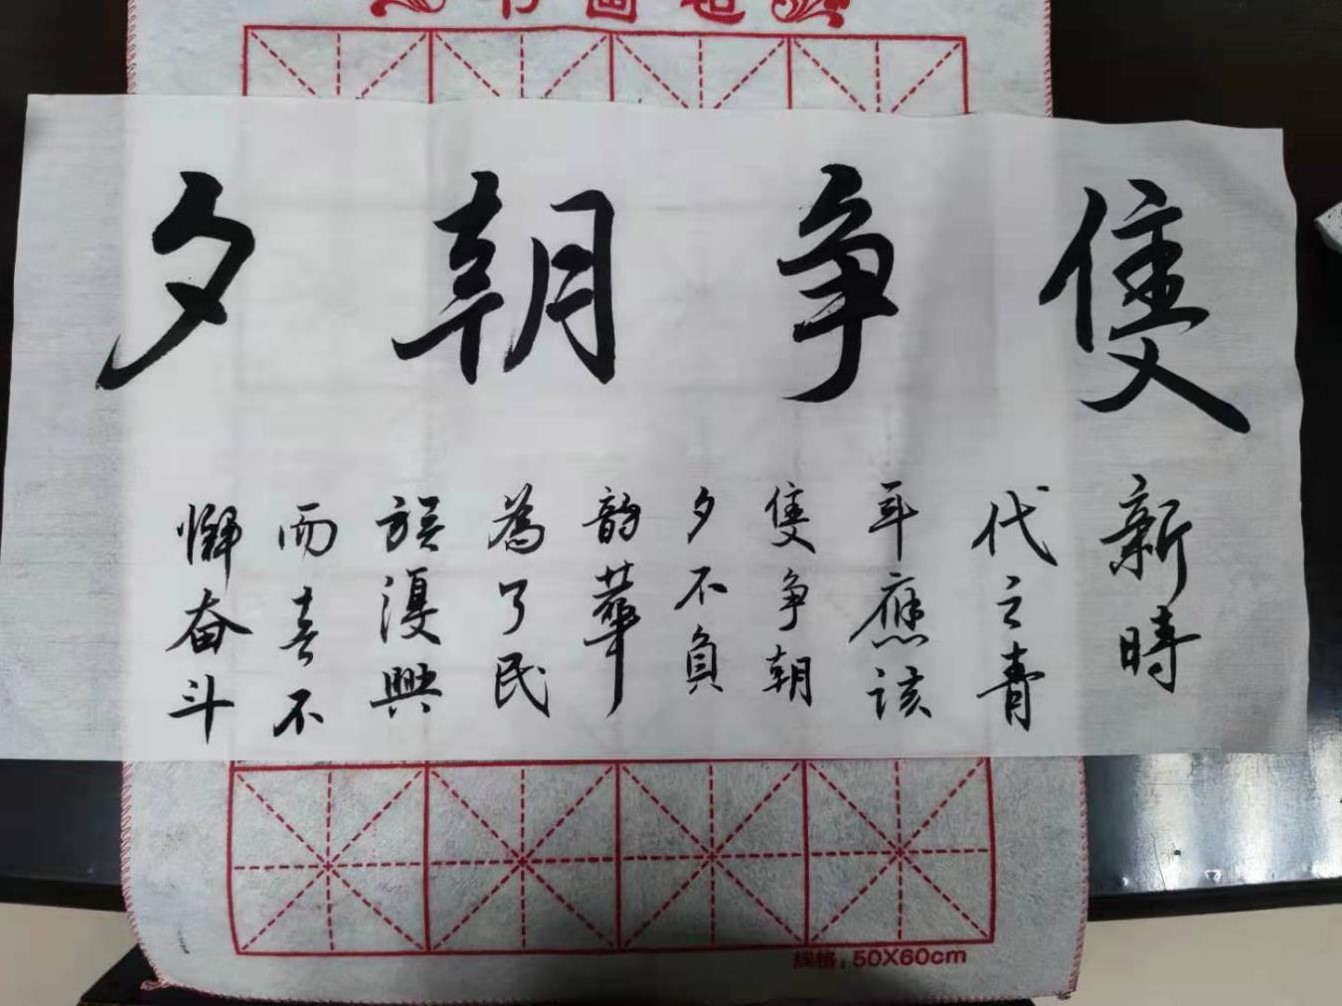 书画毡
隻争朝夕
新時
代之青
年應该
隻争朝
夕不負
韵華
為了民
族復興
而喜不
懈奋斗
规格：50X60cm